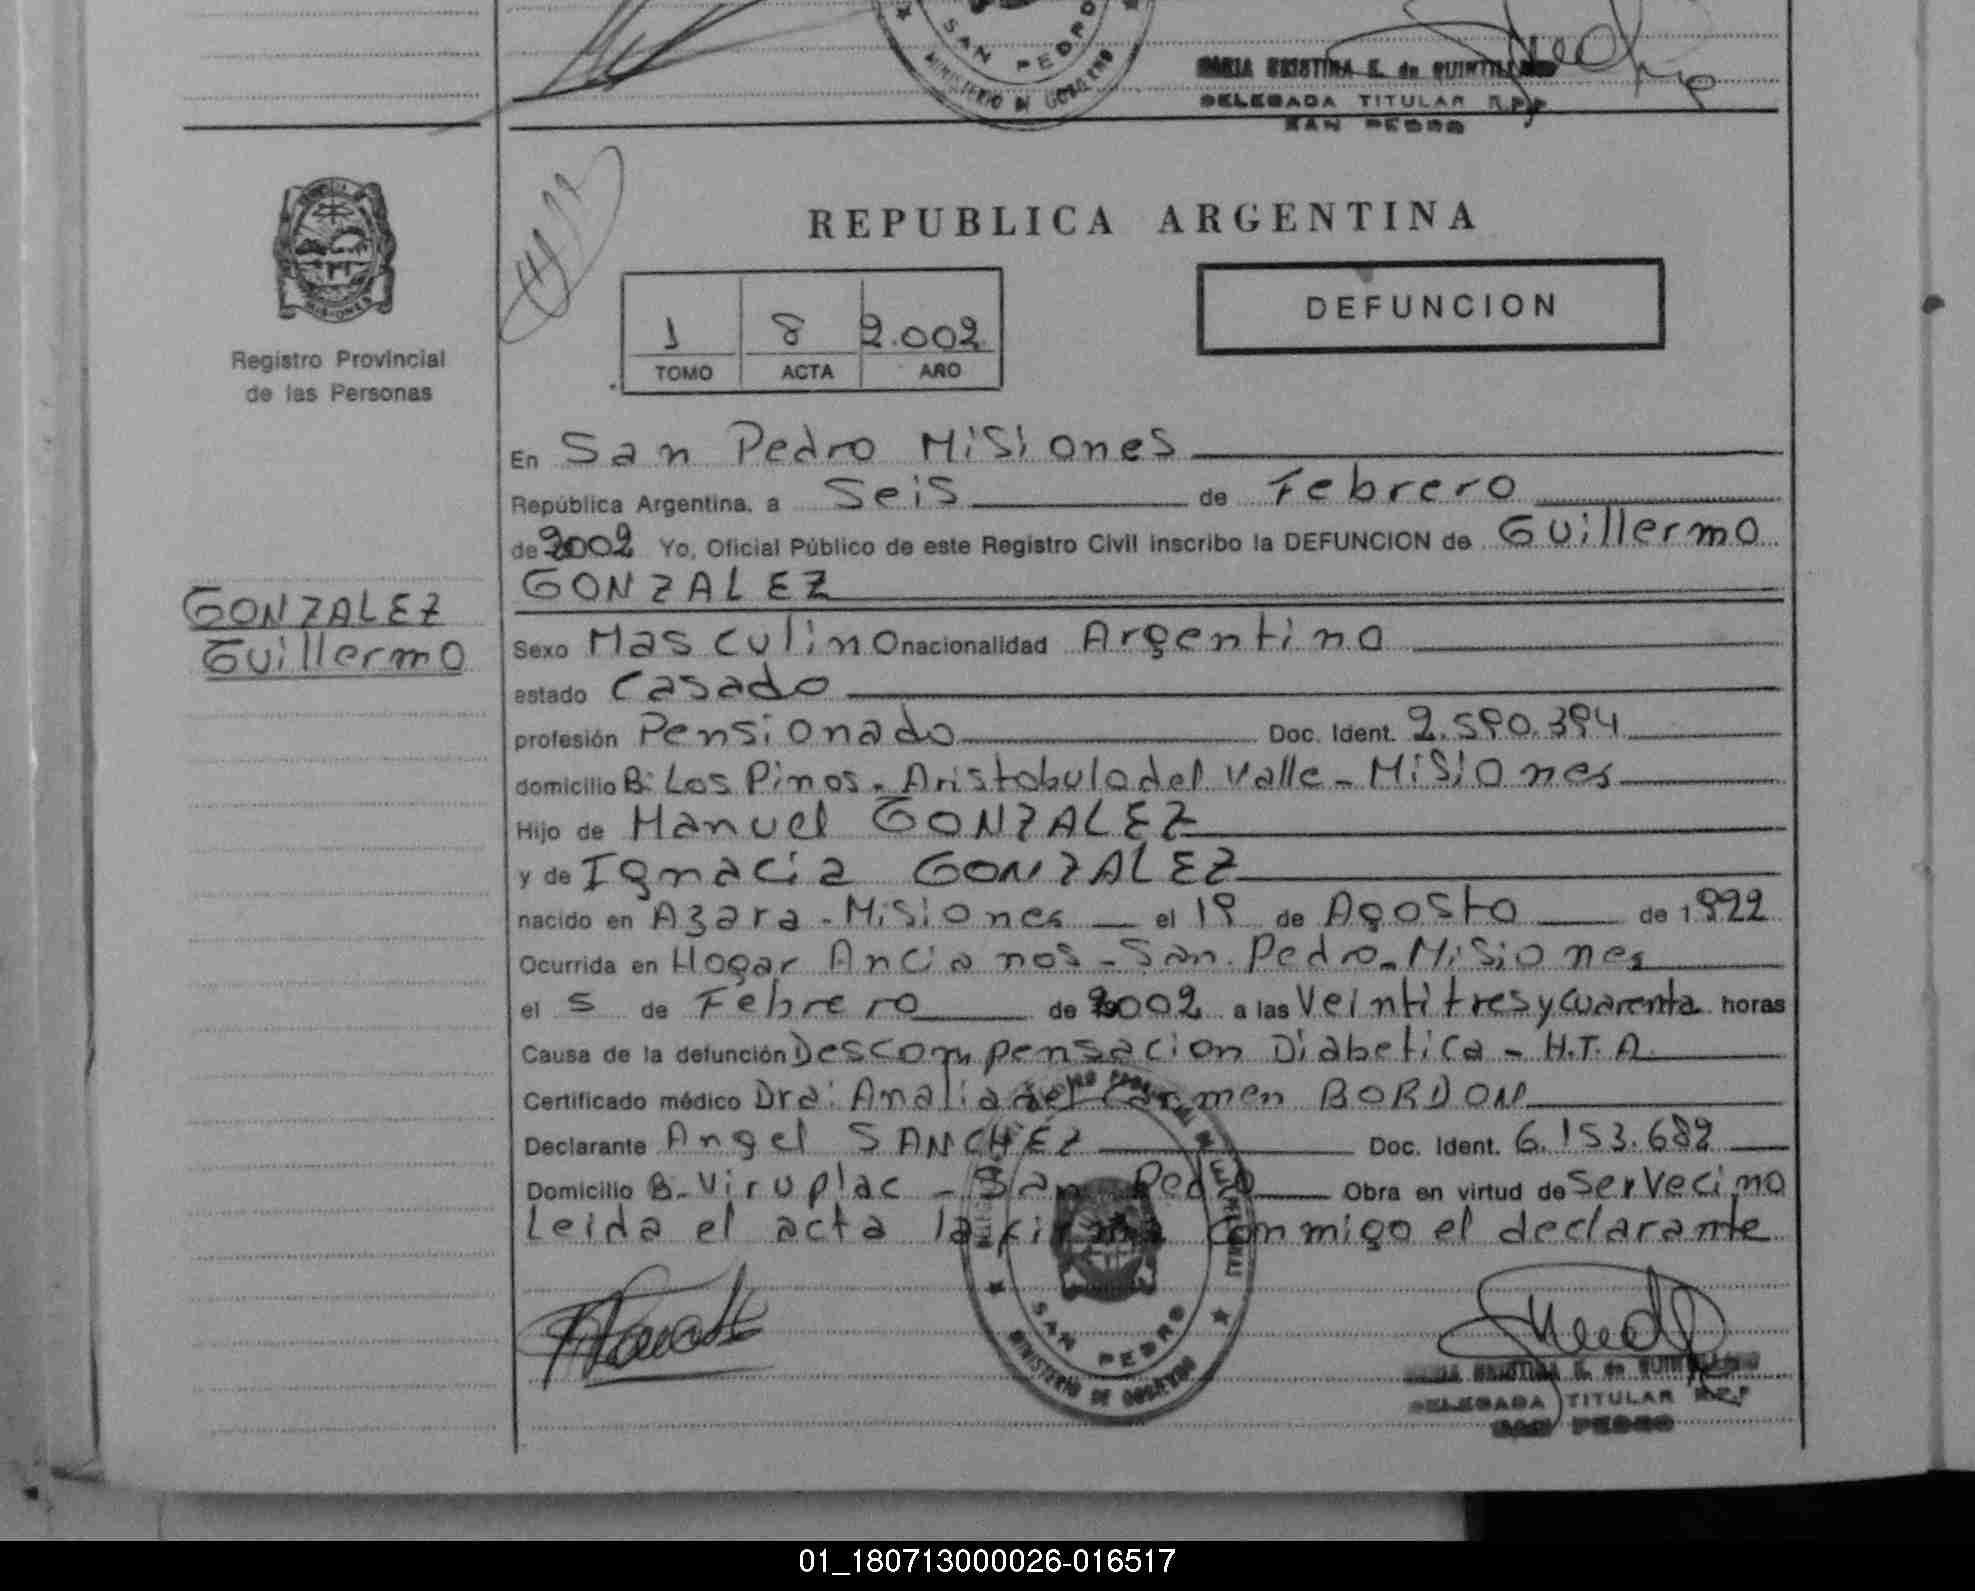 SAN PEDRO
MINISTERIO DE GOBIERNO
MARIA CRISTINA E. de QUINTILLANO
DELEGADA TITULAR R.P.P
SAN PEDRO
MISIONES
Registro Provincial
de las Personas
GONZALEZ
Guillermo
REPUBLICA ARGENTINA
1 8 2.002
TOMO ACTA AÑO
DEFUNCION
En San Pedro Misiones
República Argentina, a Seis de Febrero
de 2002 Yo, Oficial Público de este Registro Civil inscribo la DEFUNCION de Guillermo
GONZALEZ
Sexo Masculino nacionalidad Argentino
estado Casado
profesión Pensionado Doc. Ident. 2.590.394
domicilio B: Los Pinos - Aristobulo del Valle - Misiones
Hijo de Manuel GONZALEZ
y de Ignacia GONZALEZ
nacido en Azara - Misiones el 19 de Agosto de 1.922
Ocurrida en Hogar Ancianos - San Pedro - Misiones
el 5 de Febrero de 2002 a las Veintitres y cuarenta horas
Causa de la defunción Descompensacion Diabetica - H.T.A
Certificado médico Dra: Analia del Carmen BORDON
Declarante Angel SANCHEZ Doc. Ident. 6.153.689
Domicilio B. Viruplac - San Pedro Obra en virtud de Ser Vecino
Leida el acta la firma conmigo el declarante
SAN PEDRO
MINISTERIO DE GOBIERNO
MARIA CRISTINA E. de QUINTILLANO
DELEGADA TITULAR R.P.P
SAN PEDRO
01_180713000026-016517